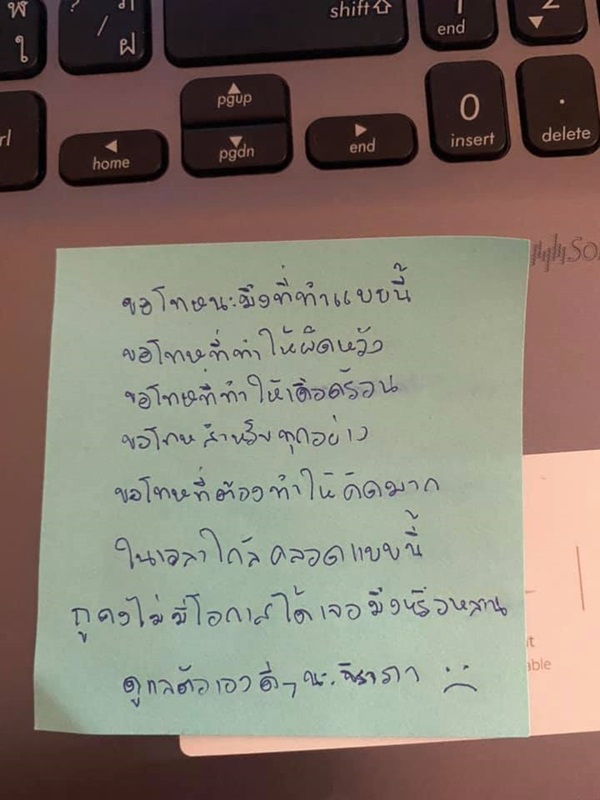 พ ?
ใ / ฝ
shift
1
end
2
rl
home
pgup
pgdn
end
0
insert
.
delete
ขอโทษนะมึงที่ทำแบบนี้
ขอโทษที่ทำให้ผิดหวัง
ขอโทษที่ทำให้เดือดร้อน
ขอโทษสำหรับทุกอย่าง
ขอโทษที่ต้องทำให้คิดมาก
ในเวลาใกล้คลอดแบบนี้
กูคงไม่มีโอกาสได้เจอมึงหรือหลาน
ดูแลตัวเองดีๆนะ
able